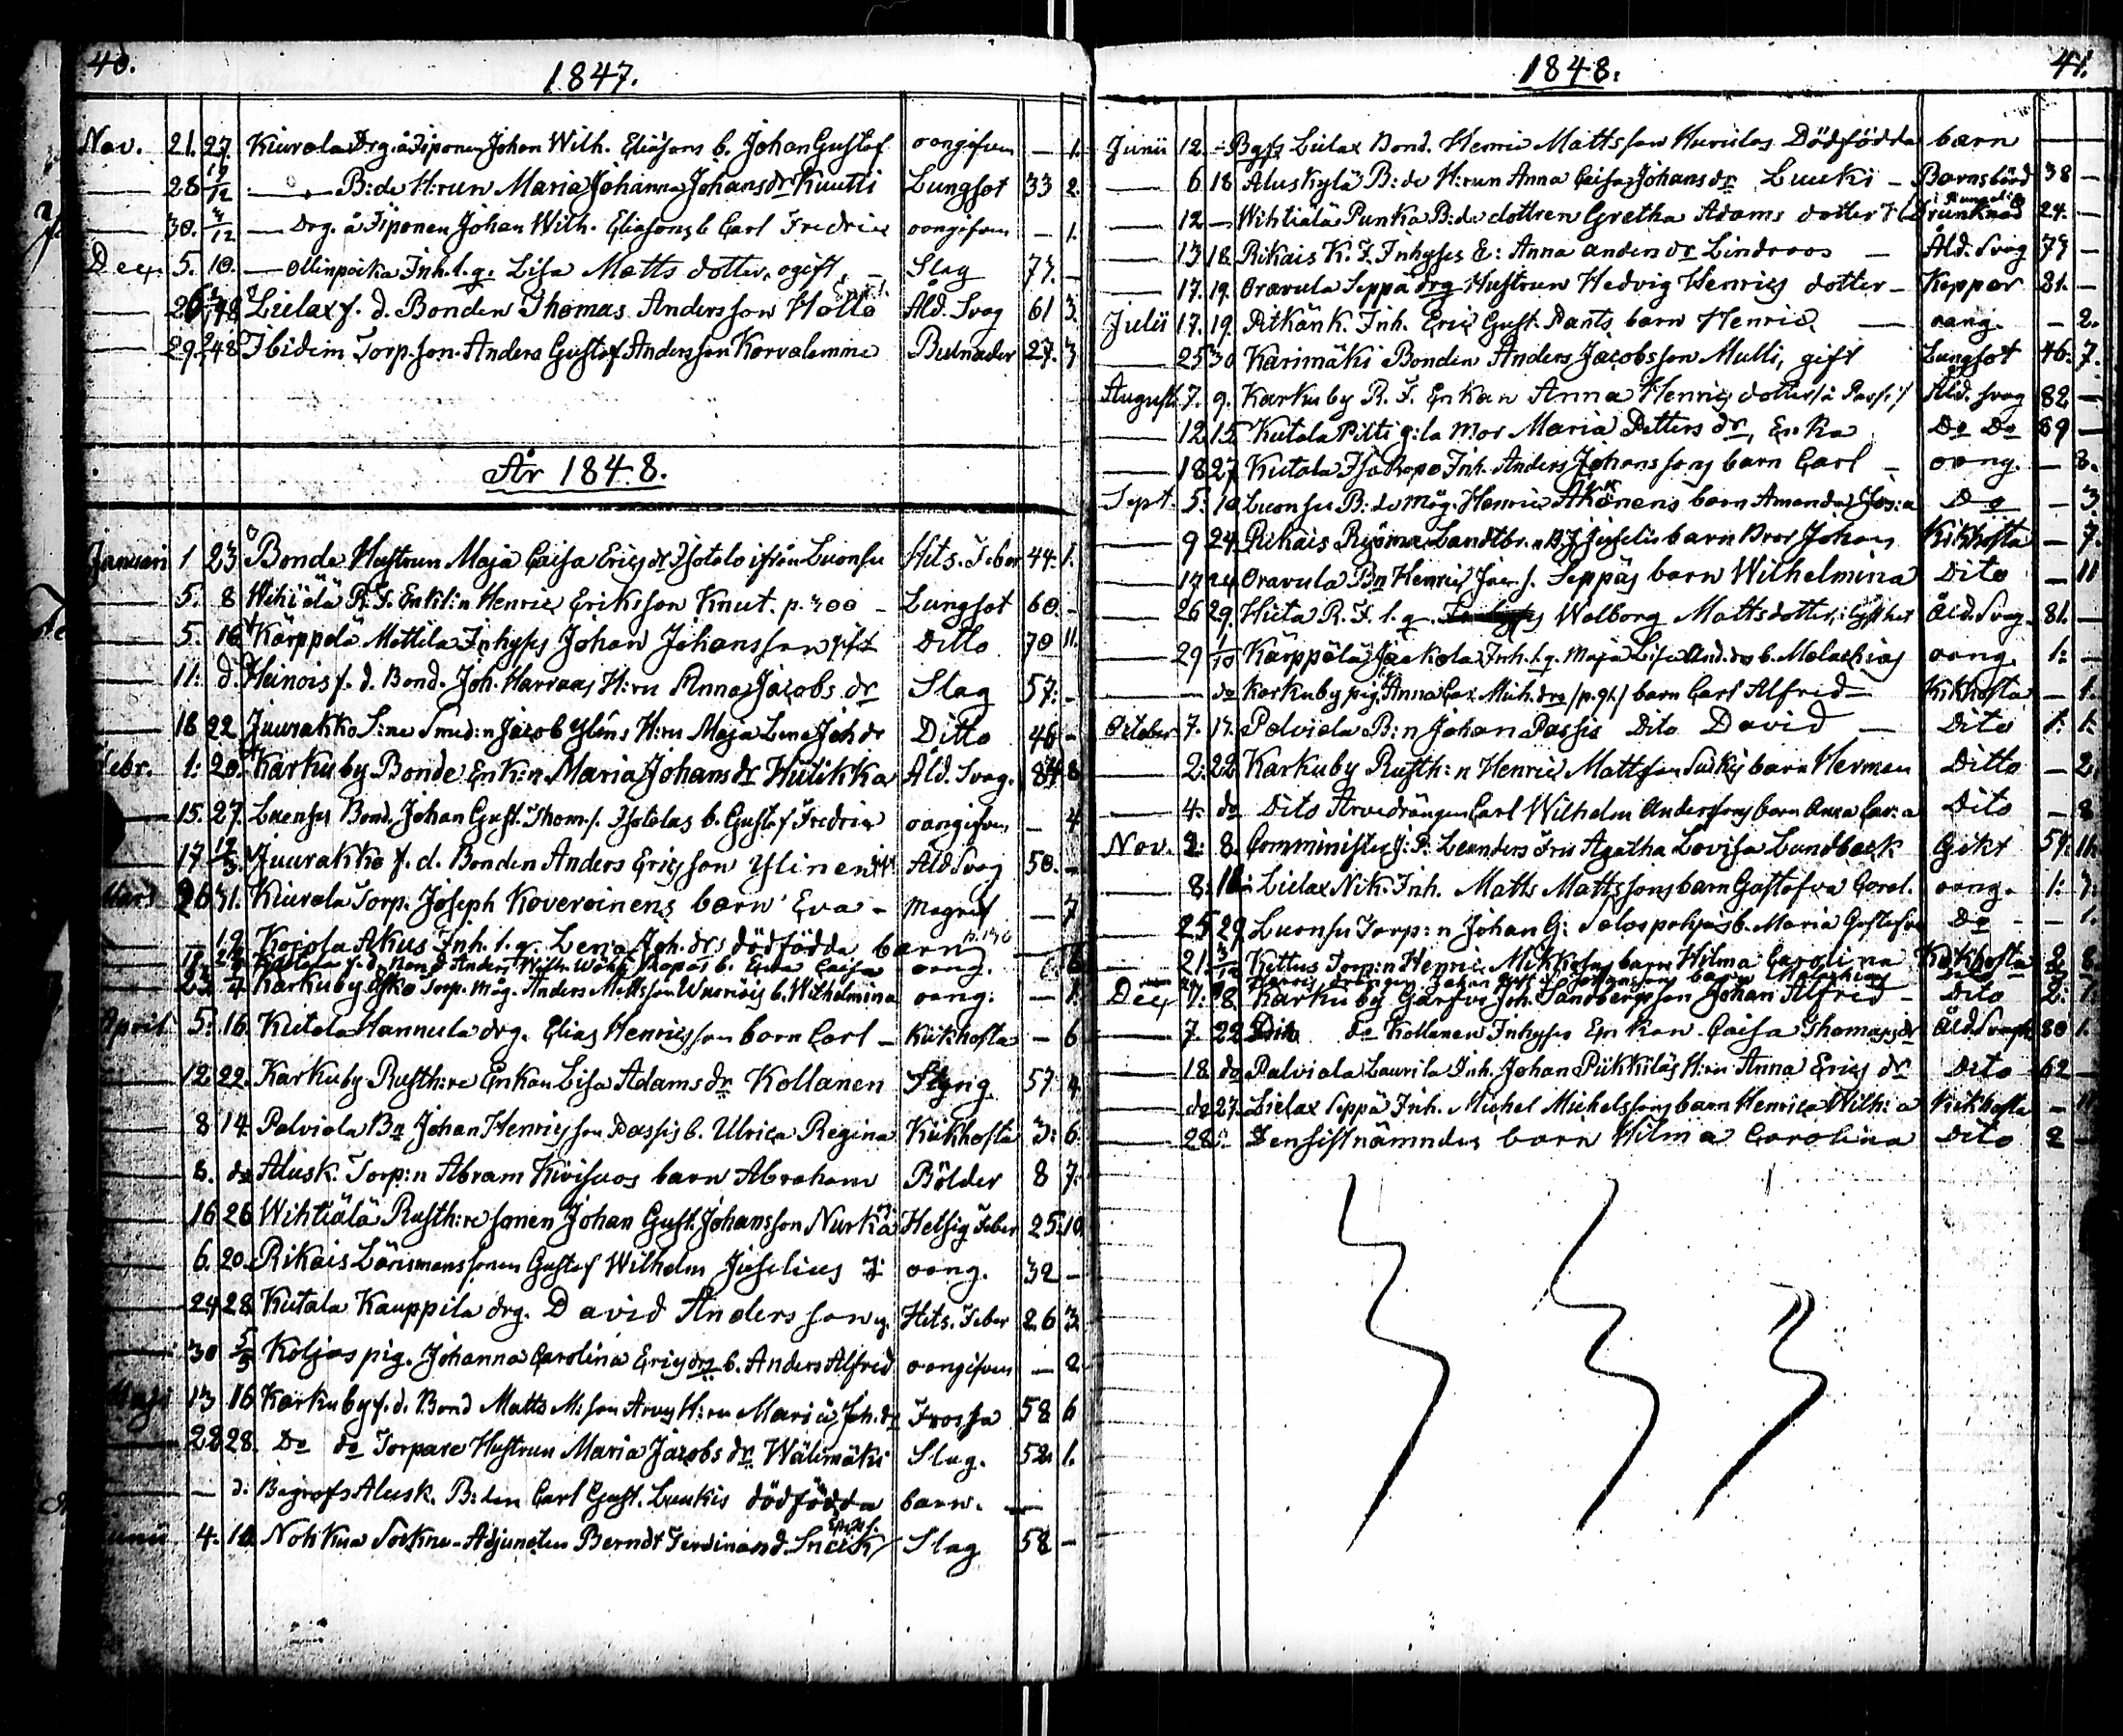 40.
1847.
Nov. 21. 27. Kiurala Drg. å Siponen Johan Wilh. Eliäsons b. Johan Gustaf oangifven — 1.
— 28 19/12 — B:de H:run Maria Johanna Johans dr Kuutti Lungsot 33 2.
— 30. /12 — Drg. å Siponen Johan Wilh. Eliasons b Carl Fredric oangifven — 1.
Dec. 5. 10. — Ollinpoika Inh. l.g. Lisa Matts dotter, ogift, — Slag 77. —
— 26 48 Lielax f. d. Bonden Thomas Andersson Hollo Åld. Svag 61 3.
— 29. 48 Ibidem Torp. son. Anders Gustaf Andersson Korvalemme 27. 3
År 1848.
Januari 1 23 Bonde Hustrun Maja Caisa Erics dr Isotalo ifrån Luonsu Hits. Feber 44. 1.
— 5. 8 Wihiälä R. S. Enkl:n Henric Eriksson Knut. p. 700 — Lungsot 60. —
— 5. 16 Kärppälä Mattila Inhyses Johan Johansson gift Ditto 70 11.
— 11. d. Heinois f. d. Bond. Joh. Harraas H:ru Anna Jacobs dr Slag 57. —
— 18 22 Juurakko S:ne Smed:n Jacob Yléns H:ru Maja Lena Joh dr Ditto 46 —
Febr. 1. 20. Karkuby Bonde Enk:n Maria Johans dr Hiitikka Åld. Svag. 84 8
— 15. 27. Luensu Bond. Johan Gust. Thom. s. Isotalos b. Gustaf Fredric oangifven — 4
— 17. 12/3 Juurakko f. d. Bonden Anders Ericsson Ylinen Åld Svag 50. —
Mars 26 31. Kiurala Torp. Joseph Koveroinens barn Eva — Magref — 7
— 19 Kojola Akus Inh. l.g. Lena Joh. drs dödfödda barn
f. d. Bond. Anders Wilh. b. Caisa oang.
— 23 Karkuby Torp. måg. Anders Mattsson b. Wilhelmina oang. — 1.
April 5. 16. Kutala Hannula drg. Elias Henricsson barn Carl — Kikhosta — 6
— 12. 22. Karkuby Rusth:re Enkan Lisa Adams dr Kollanen Styng. 57 4.
— 8 14 Palviala Bn Johan Henricsson Passis b. Ulrica Regina Kikhosta 3. 6.
— 8. do Alusk. Torp:n Abram Kivisuos barn Abraham Bölder 8 7.
— 16 26 Wihtiälä Rusth:re sonen Johan Gust. Johansson Nurka Hetsig Feber 25. 10.
— 6. 20. Rikais Länsmanssonen Gustaf Wilhelm Juselius oang. 32 —
— 24 28 Kutala Kauppila drg. David Andersson Hits. Feber 26 3
— 30 5/5 Koljas pig. Johanna Carolina Erics drs b. Anders Alfred oangifven — 2.
Maji 13 16 Karkuby f. d. Bond Matts M:son Arvy H:ru Maria Joh. dr Frossa 58 6
— 22 28. Do do Torpare Hustrun Maria Jacobs dr. Wälimäki Slag. 52. 1.
— d. Begrafs Alusk. B:den Carl Gust. Luukis dödfödda barn. —
Junii 4. 10. Nohkua Sockne-Adjuncten Berndt Ferdinand. Slag 58 —
1848.
41.
Junii 12. — Bgfs Lielax Bond. Henric Mattsson Dödfödda barn
— 6 18 Aluskylä B:de H:run Anna Caisa Johans dr Luuki — Barnsbörd 38 —
— 12 — Wihtiälä Punka B:de dottren Gretha Adams dotter Drunknad 24. —
— 13 18. Rikais K. I. Inhyses E: Anna anders dr Lindroos — Åld. Svag 77 —
— 17. 19. Oravula Seppä drg Hustrun Hedvig Henrics dotter — Koppor 31. —
Julii 17. 19. Pitkän K. Inh. Eric Gust. Dants barn Henric — oang. — 2.
— 25 30 Karimäki Bonden Anders Jacobsson Mulli, gift Lungsot 46. 7.
Augusti 7. 9. Karkuby R. S. Enkan Anna Henrics dotter Åld. svag 82 —
— 12 15. Kutala Pitti g:la mor Maria Petters dr, Enka Do Do 89 —
— 18 27. Kutala Isa Ropo Inh. Anders Johanssons barn Carl — oang. — 8.
Sept. 5. 10. Luonsu B:de måg. Henric barn Amanda Do — 3
— 9 24. Rikais Landtbr. barn Bror Johan Kikhosta — 7.
— 17 24 Oravula Bn Henric Jac. s. Seppäs barn Wilhelmina Dito — 11
— 26 29. Huta R. S. l.g. Walborg Mattsdotter, Åld. Svag. 81. —
— 29 1/10 Kärppälä Jaakola Inh. l.g. Maja Lisa And. drs b. Malachias oang. 1. —
— — do Karkuby pig. Anna Caj. Mich. drs barn Carl Alfred — Kikhosta — 1.
October 7. 17. Palviala B:n Johan Passis Dito David — Dito 1. 1.
— 2. 22 Karkuby Rusth:n Henric Mattsson barn Herman Ditto — 2.
— 4. do Dito Arvedrängen Carl Wilhelm Anderssons barn Anna Car:a Dito — 8
Nov. 2. 8. Comministern J. P. Leanders Fru Agatha Lovisa Lundbeck Gikt 59. 11.
— 8. 18. Lielax Nik. Inh. Matts Mattssons barn Gustafva Carol. oang. 1. 3.
— 25 29. Luonsu Torp:n Johan G: Salospohjas b. Maria Gustafva Do — 1.
— 21. 3/12 Kittus Torp:n Henric Mikkolas barn Hilma Carolina Kikhosta 2 8
Dec 7. Karkuby Garfvar Joh. Sandbergs son Johan Alfred — dito 2. 1.
— 7. 22 Dito do Kollanen Inhyses Enkan Caisa Thomas dr Åld. Svagh 80 1.
— 18. do Palviala Laurila Inh. Johan Piikkiläs H:ru Anna Erics dr Dito 62 —
— do 27. Lielax Seppä Inh. Michel Michelssons barn Henrica Wilh:a Kikhosta — 11
— 28 Densistnämndes barn Hilma Carolina Dito 2 —